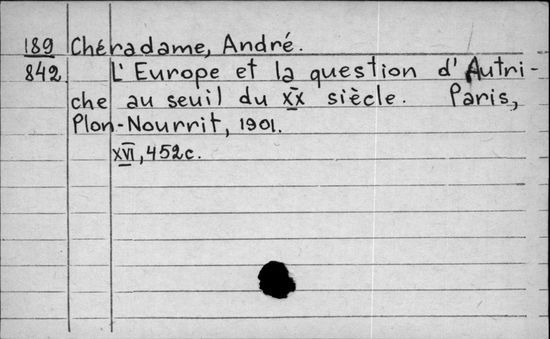 189 Chéradame, André.
842 L'Europe et la question d'Autri-
che au seuil du XX siècle. Paris,
Plon-Nourrit, 1901.
XVI, 452c.